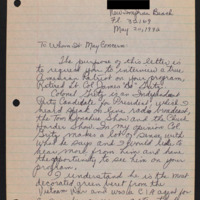 New Smyrna Beach
Fl. 32169
May 20, 1992
To Whom It May Concern:
The purpose of this letter is
to request you to interview a true
American Patriot on your program,
Retired Lt. Col James "Bo" Gritz.
Colonel Gritz is an Independent
Party Candidate for President which I
heard speak on two radio
the Tom Donahue Show and the Chuck
Harder Show. In my opinion Col
Gritz makes a lot of sense with
what he says and I would like to
hear more from him and have
the opportunity to see him on your
program.
I understand he is the most
decorated green beret from the
Vietnam War and was a C.I.A agent for